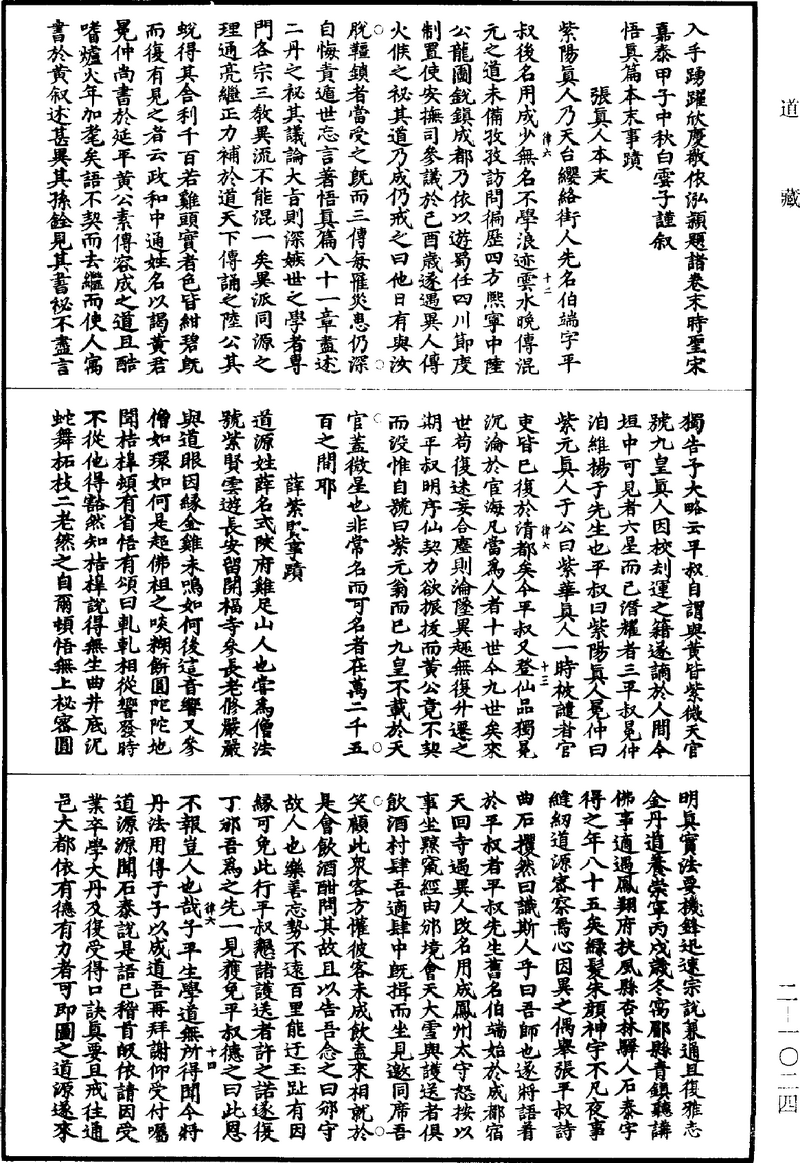 道藏
入手踴躍欣慶敬依泓潁題諸卷末時聖宋
嘉泰甲子中秋白雲子謹叙
悟真篇本末事蹟
張真人本末
紫陽真人乃天台纓絡街人先名伯端字平
叔後名用成少無名不學浪迹雲水晚傳混
元之道未備孜孜訪問徧歷四方熙寧中陸
公龍圖銳鎮成都乃依以遊蜀任四川節度
制置使安撫司參議於己酉歲遂遇異人傳
火候之秘其道乃成仍戒之曰他日有與汝
脫韁鎖者當受之既而三傳每罹災患仍深
自悔責遁世忘言著悟真篇八十一章盡述
二丹之秘其議論大旨則深嫉世之學者專
門各宗三教異流不能混一矣異派同源之
理通亮繼正力補於道天下傳誦之陸公其
蛻得其舍利千百若雞頭實者色皆紺碧既
而復有見之者云政和中通姓名以謁黃君
冕仲尚書於延平黃公素傳容成之道且酷
嗜爐火年加耄矣語不契而去繼而使人寓
書於黃叙述甚異其孫銓見其書祕不盡言
律六
十二
獨告予大略云平叔自謂與黃皆紫微天官
號九皇真人因校刦運之籍遂謫於人間今
垣中可見者六星而已潛耀者三平叔冕仲
洎維揚于先生也平叔曰紫陽真人冕仲曰
紫元真人于公曰紫華真人一時被譴者官
吏皆已復於清都矣今平叔又登仙品獨冕
沉淪於官海凡當為人者十世今九世矣來
世苟復迷妄合塵則淪墜異趣無復升遷之
期平叔明序仙契力欲振拔而黃公竟不契
而没惟自號曰紫元翁而已九皇不載於天
官蓋微星也非常名而可名者在萬二千五
百之間耶
律六
十三
薛紫賢事蹟
道源姓薛名式陝府雞足山人也嘗為僧法
號紫賢雲遊長安留開福寺參長老修嚴嚴
與道眼因緣金雞未鳴如何後這音響又參
僧如環如何是超佛祖之唊糊餅圓陀陀地
聞桔槹頓有省悟有頌曰軋軋相從響發時
不從他得豁然知桔槹說得無生曲井底泥
蛇舞柘枝二老然之自爾頓悟無上秘密圓
明真實法要機鋒迅速宗說兼通且復雅志
金丹道養崇寧丙戌歲冬寓郿縣青鎮聽講
佛事適遇鳳翔府扶風縣杏林驛人石泰字
得之年八十五矣綠髮朱顏神宇不凡夜事
縫紉道源密察焉心因異之偶舉張平叔詩
曲石攫然曰識斯人乎曰吾師也遂將語着
於平叔者平叔先生舊名伯端始於成都宿
天回寺遇異人改名用成鳳州太守怒按以
事坐黥竄經由邠境會天大雪與護送者俱
飲酒村肆吾適肆中既揖而坐見邀同席吾
笑顧此衆客方懽彼客未成飲盍來相就於
是會飲酒酣問其故且以告吾念之曰邠守
故人也樂善忘勢不遠百里能迂玉趾有因
緣可免此行平叔懇諸護送者許之諾遂復
丁邠吾為之先一見獲免平叔德之曰此恩
不報豈人也哉子平生學道無所得聞今將
丹法用傳子子以成道吾再拜謝仰受付囑
道源源聞石泰說是語已稽首皈依請因受
業卒學大丹及復受得口訣真要且戒往通
邑大都依有德有力者可即圖之道源遂來
律六
十四
二-一〇二四